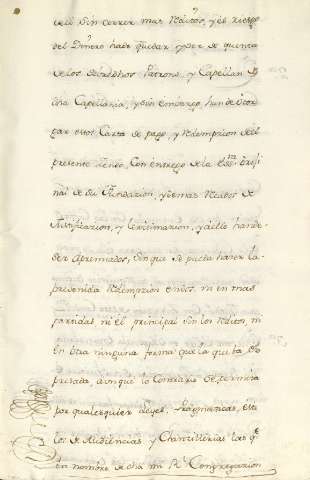 cesè sin correr mas reditos, y el riesgo
del Dinero hade quedar, y ser de quenta
de los sobredhos Patrono, y Capellan de
dha Capellania, y sin embargo han de otor
gar ottos Carta de pago, y redempcion del
presente Censo, con entrego de la Essra Origi
nal de su Fundazion, y demas recados de
Justificazion, y lexitimazion, y à ello han de
ser apremiados, sin que se pueda hazer la
prevenida redempzion en dos, ni en mas
partidas ni el principal sin los reditos, ni
en otra ninguna forma que la que ba ex
presada, aunque lo Contrario se permita
por qualesquier Leyes, Pragmaticas, esti
los de Audiencias, y Chanzillerias las qe
en nombre de dha mi Rl Congregacion